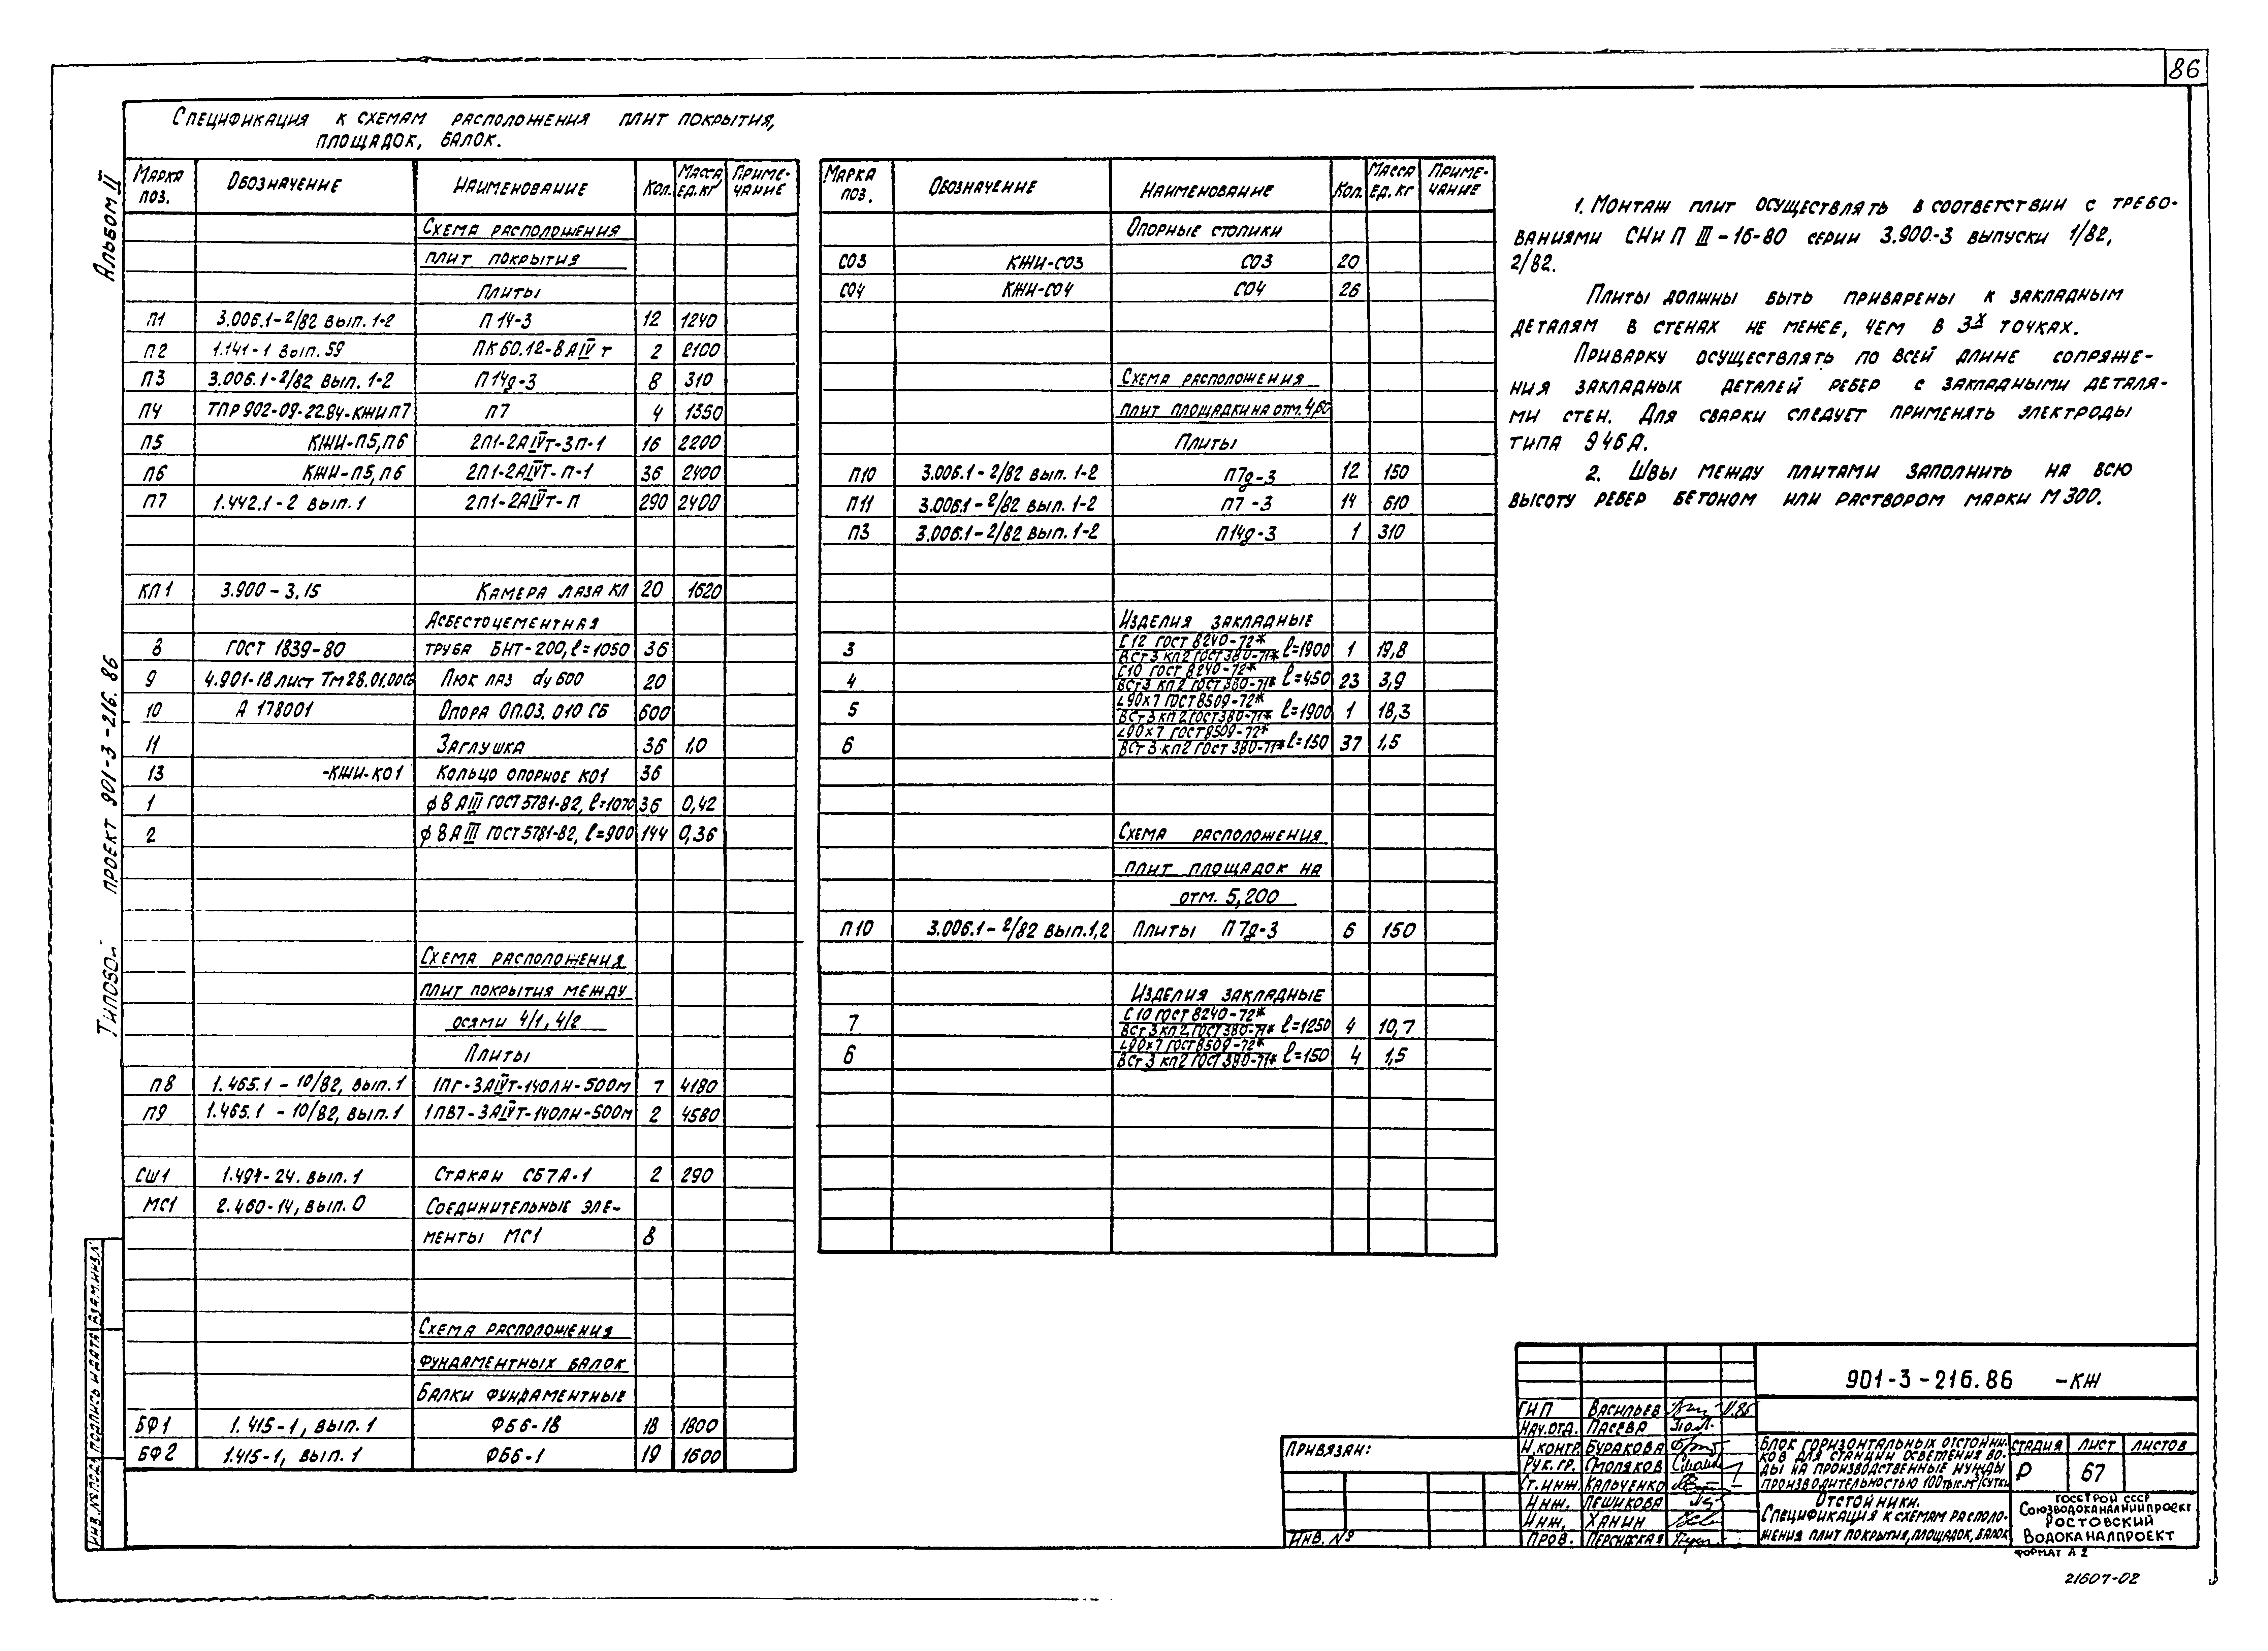 86
Альбом II
Типовой проект 901-3-216.86
Спецификация к схемам расположения плит покрытия,
площадок, балок.
Марка поз. Обозначение Наименование Кол. Масса ед.кг Примечание
Схема расположения
плит покрытия
Плиты
П1 3.006.1-2/82 вып. 1-2 П 14-3 12 1240
П2 1.141-1 вып. 59 ПК60.12-8АIVт 2 2100
П3 3.006.1-2/82 вып. 1-2 П14д-3 8 310
П4 ТПР 902-09-22.84-КЖИ П7 П7 4 1350
П5 КЖИ-П5,П6 2П1-2АIVт-3П-1 16 2200
П6 КЖИ-П5,П6 2П1-2АIVт-П-1 36 2400
П7 1.442.1-2 вып. 1 2П1-2АIVт-П 290 2400
КЛ1 3.900-3.15 Камера лаза КЛ 20 1620
Асбестоцементная
8 ГОСТ 1839-80 труба БНТ-200, ℓ=1050 36
9 4.901-18 лист Тм28.01.00СБ Люк лаз dу600 20
10 А 178001 Опора ОП.03.010 СБ 600
11 Заглушка 36 1,0
13 -КЖИ-КО1 Кольцо опорное КО1 36
1 ф8АIII ГОСТ 5781-82, ℓ=1070 36 0,42
2 ф8АIII ГОСТ 5781-82, ℓ=900 144 0,36
Схема расположения
плит покрытия между
осями 4/1, 4/2
Плиты
П8 1.465.1-10/82, вып. 1 1ПГ-3АIVт-140ЛН-500м 7 4180
П9 1.465.1-10/82, вып. 1 1ПВ7-3АIVт-140ЛН-500м 2 4580
СШ1 1.494-24. вып. 1 Стакан СБ7А-1 2 290
МС1 2.460-14, вып. 0 Соединительные эле-
менты МС1 8
Схема расположения
фундаментных балок
Балки фундаментные
БФ1 1.415-1, вып. 1 ФБ6-18 18 1800
БФ2 1.415-1, вып. 1 ФБ6-1 19 1600
Марка поз. Обозначение Наименование Кол. Масса ед. кг Примечание
Опорные столики
СО3 КЖИ-СО3 СО3 20
СО4 КЖИ-СО4 СО4 26
Схема расположения
плит площадки на отм.
Плиты
П10 3.006.1-2/82 вып. 1-2 П7д-3 12 150
П11 3.006.1-2/82 вып. 1-2 П7-3 14 610
П3 3.006.1-2/82 вып. 1-2 П14д-3 1 310
Изделия закладные
3 С12 ГОСТ 8240-72* / ВСт3 кп2 ГОСТ 380-71* ℓ=1900 1 19,8
4 С10 ГОСТ 8240-72* / ВСт3 кп2 ГОСТ 380-71* ℓ=450 23 3,9
5 L90х7 ГОСТ 8509-72* / ВСт3 кп2 ГОСТ 380-71* ℓ=1900 1 18,3
6 L90х7 ГОСТ 8509-72* / ВСт3 кп2 ГОСТ 380-71* ℓ=150 37 1,5
Схема расположения
плит площадок на
отм. 5,200
П10 3.006.1-2/82 вып.1,2 Плиты П7д-3 6 150
Изделия закладные
7 С10 ГОСТ 8240-72* / ВСт3 кп2 ГОСТ 380-71* ℓ=1250 4 10,7
6 L90х7 ГОСТ 8509-72* / ВСт3 кп2 ГОСТ 380-71* ℓ=150 4 1,5
1. Монтаж плит осуществлять в соответствии с требо-
ваниями СНиП III-16-80 серии 3.900-3 выпуски 1/82,
2/82.
Плиты должны быть приварены к закладным
деталям в стенах не менее, чем в 3х точках.
Приварку осуществлять по всей длине сопряже-
ния закладных деталей ребер с закладными деталя-
ми стен. Для сварки следует применять электроды
типа Э46А.
2. Швы между плитами заполнить на всю
высоту ребер бетоном или раствором марки М300.
Привязан:
Инв. №
901-3-216.86 -КЖ
ГИП Васильев
Нач.отд. Пасева
Н.контр. Буракова
Рук. гр. Смоляков
Ст.инж. Кальченко
Инж. Лешикова
Инж. Ханин
Пров.
Блок горизонтальных отстойни-
ков для станции осветления во-
ды на производственные нужды
производительностью 100тыс.м³/сутки
Стадия Лист Листов
Р 67
Отстойники.
Спецификация к схемам располо-
жения плит покрытия, площадок, балок
Госстрой СССР
Союзводоканалниипроект
Ростовский
Водоканалпроект
Формат А2
21607-02
Инв. № подл. Подпись и дата Взам.инв.№